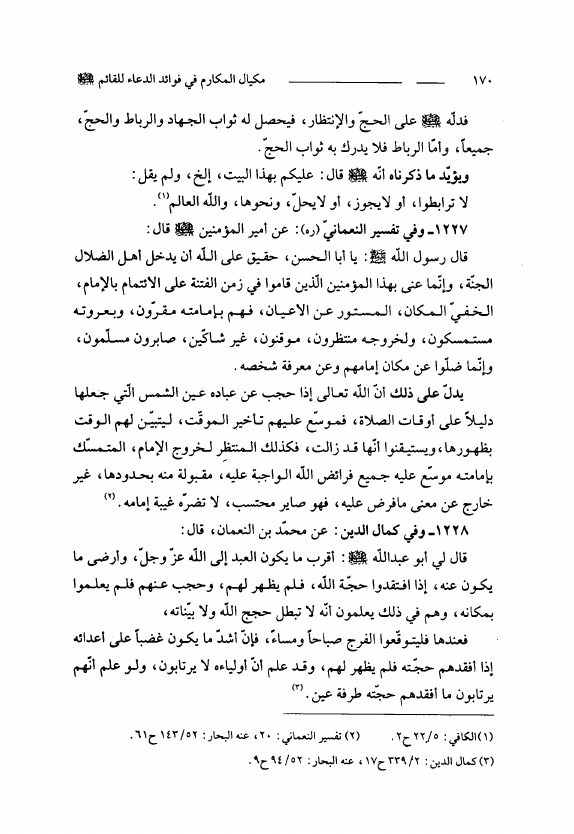 ١٧٠ مكيال المكارم في فوائد الدعاء للقائم ﷺ
فدلّه ﷺ على الحجّ والإنتظار، فيحصل له ثواب الجهاد والرباط والحجّ،
جميعاً، وأمّا الرباط فلا يدرك به ثواب الحجّ.
ويؤيّد ما ذكرناه أنّه ﷺ قال: عليكم بهذا البيت، إلخ، ولم يقل:
لا ترابطوا، أو لايجوز، أو لايحلّ، ونحوها، والله العالم(١).
١٢٢٧ـ وفي تفسير النعمانيّ (ره): عن أمير المؤمنين ﷺ قال:
قال رسول الله ﷺ: يا أبا الحسن، حقيق على الله أن يدخل أهل الضلال
الجنّة، وإنّما عنى بهذا المؤمنين الّذين قاموا في زمن الفتنة على الائتمام بالإمام،
الخفيّ المكان، المستور عن الاعيان، فهم بإمامته مقرّون، وبعروته
مستمسكون، ولخروجه منتظرون، موقنون، غير شاكّين، صابرون مسلّمون،
وإنّما ضلّوا عن مكان إمامهم وعن معرفة شخصه.
يدلّ على ذلك أنّ الله تعالى إذا حجب عن عباده عين الشمس الّتي جعلها
دليلاً على أوقات الصلاة، فموسّع عليهم تأخير الموقّت، ليتبيّن لهم الوقت
بظهورها، ويستيقنوا أنّها قد زالت، فكذلك المنتظِر لخروج الإمام، المتمسّك
بإمامته موسّع عليه جميع فرائض الله الواجبة عليه، مقبولة منه بحدودها، غير
خارج عن معنى مافرض عليه، فهو صابر محتسب، لا تضرّه غيبة إمامه.(٢)
١٢٢٨ـ وفي كمال الدين: عن محمّد بن النعمان، قال:
قال لي أبو عبدالله ﷺ: أقرب ما يكون العبد إلى الله عزّ وجلّ، وأرضى ما
يكون عنه، إذا افتقدوا حجّة الله، فلم يظهر لهم، وحجب عنهم فلم يعلموا
بمكانه، وهم في ذلك يعلمون أنّه لا تبطل حجج الله ولا بيّناته،
فعندها فليتوقّعوا الفرج صباحاً ومساءً، فإنّ أشدّ ما يكون غضباً على أعدائه
إذا أفقدهم حجّته فلم يظهر لهم، وقد علم أنّ أولياءه لا يرتابون، ولو علم أنّهم
يرتابون ما أفقدهم حجّته طرفة عين.(٣)
(١) الكافي: ٢٢/٥ ح٢. (٢) تفسير النعماني: ٢٠، عنه البحار: ١٤٣/٥٢ ح٦١.
(٣) كمال الدين: ٣٣٩/٢ ح١٧، عنه البحار: ٩٤/٥٢ ح٩.